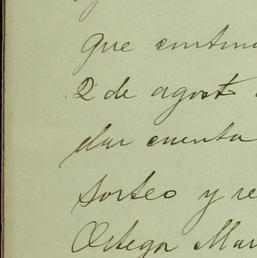 que
2 de agost
dar cuenta
sorteo y re
Ortega Mar